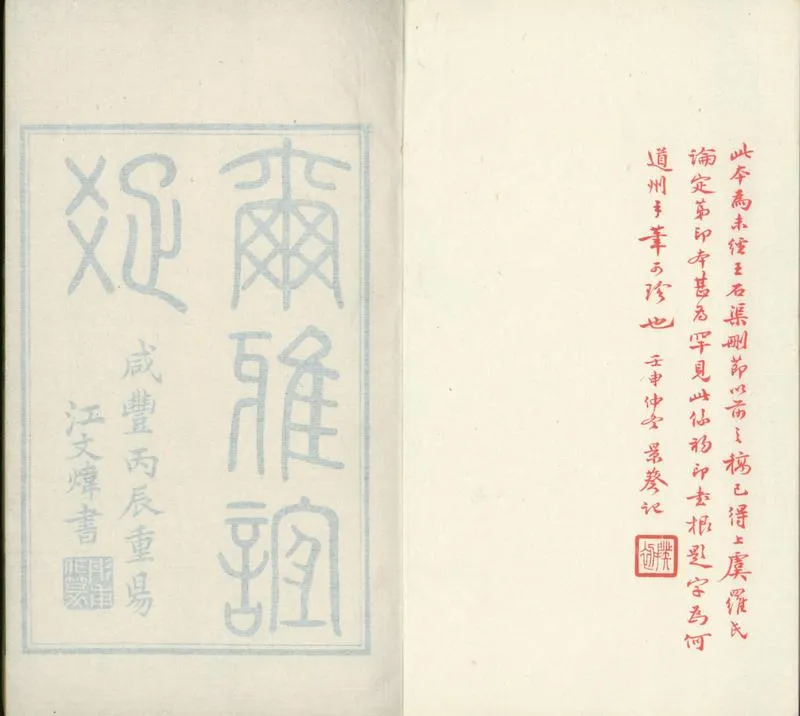 此本為未經王石渠刪節以前之稿已得上虞羅氏
論定第印本甚為罕見此係初印書根題字為何
道州手筆可珍也
壬申仲冬景葵記
揆初
爾雅誼
疏
咸豐丙辰重昜
江文煒書